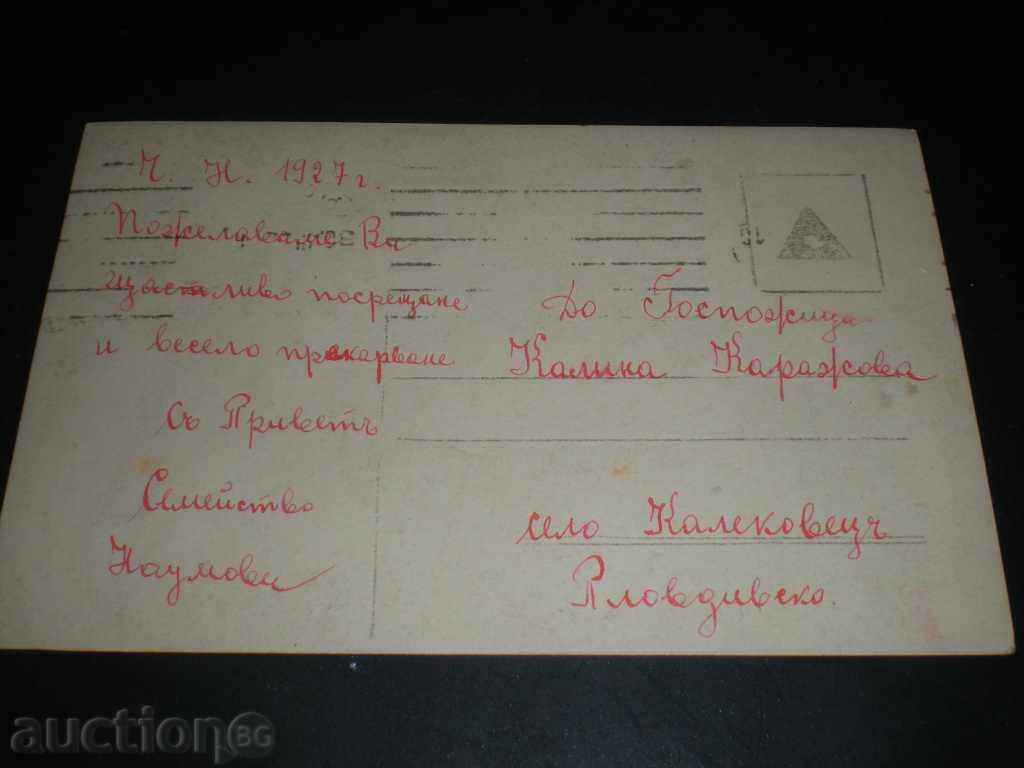 Ч. Н. 1927 г.
Пожелаваме Ви
щастливо посрещане
и весело прекарване
съ Приветъ
Семейство
Наумови
До Госпожица
Калина Каражова
село Калековецъ
Пловдивско.
auction BG